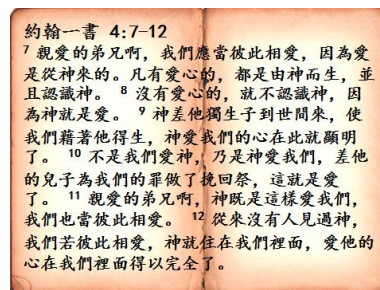 約翰一書 4:7-12
7 親愛的弟兄啊，我們應當彼此相愛，因為愛
是從神來的。凡有愛心的，都是由神而生，並
且認識神。 8 沒有愛心的，就不認識神，因
為神就是愛。 9 神差他獨生子到世間來，使
我們藉著他得生，神愛我們的心在此就顯明
了。 10 不是我們愛神，乃是神愛我們，差他
的兒子為我們的罪做了挽回祭，這就是愛
了。 11 親愛的弟兄啊，神既是這樣愛我們，
我們也當彼此相愛。 12 從來沒有人見過神，
我們若彼此相愛，神就住在我們裡面，愛他的
心在我們裡面得以完全了。